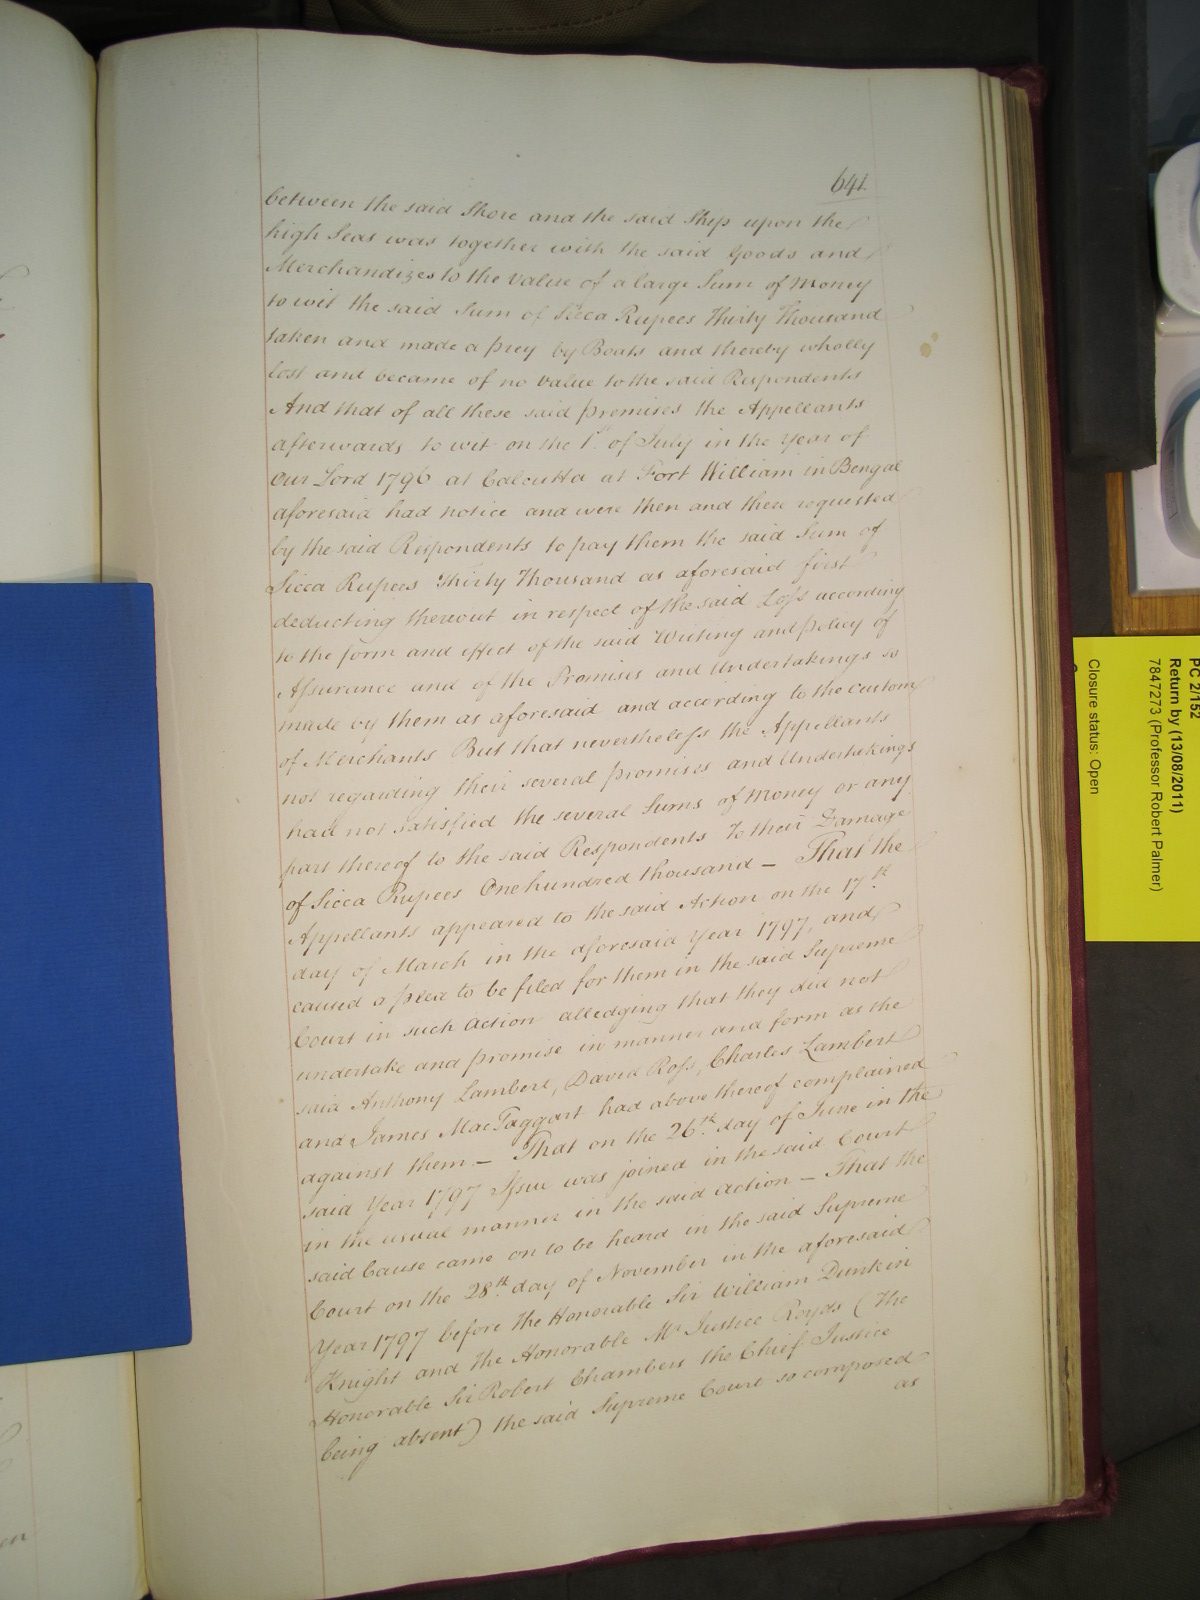 641
between the said Shore and the said Ship upon the
high Seas was together with the said Goods and
Merchandizes to the value of a large Sum of Money
to wit the said Sum of Sicca Rupees Thirty Thousand
taken and made a prey by Boats and thereby wholly
lost and became of no value to the said Respondents
And that of all these said premises the Appellants
afterwards to wit on the 1st of July in the Year of
Our Lord 1796 at Calcutta at Fort William in Bengal
aforesaid had notice and were then and there requested
by the said Respondents to pay them the said Sum of
Sicca Rupees Thirty Thousand as aforesaid first
deducting thereout in respect of the said Loss according
to the form and effect of the said Writing and policy of
Assurance and of the Promises and Undertakings so
made by them as aforesaid and according to the custom
of Merchants But that nevertheless the Appellants
not regarding their several promises and Undertakings
had not satisfied the several Sums of Money or any
part thereof to the said Respondents To their Damage
of Sicca Rupees One hundred thousand – That the
Appellants appeared to the said Action on the 17th
day of March in the aforesaid Year 1797, and
caused a plea to be filed for them in the said Supreme
Court in such Action alledging that they did not
undertake and promise in manner and form as the
said Anthony Lambert, David Ross, Charles Lambert
and James MacTaggart had above thereof complained
against them – That on the 26th day of June in the
said Year 1797 Issue was joined in the said Court
in the usual manner in the said Action – That the
said Cause came on to be heard in the said Supreme
Court on the 28th day of November in the aforesaid
Year 1797 before the Honorable Sir William Dunkin
Knight and the Honorable Mr Justice Royds (The
Honorable Sir Robert Chambers the Chief Justice
being absent) the said Supreme Court so composed
as
PC 2/152
Return by (13/08/2011)
7847273 (Professor Robert Palmer)
Closure status: Open